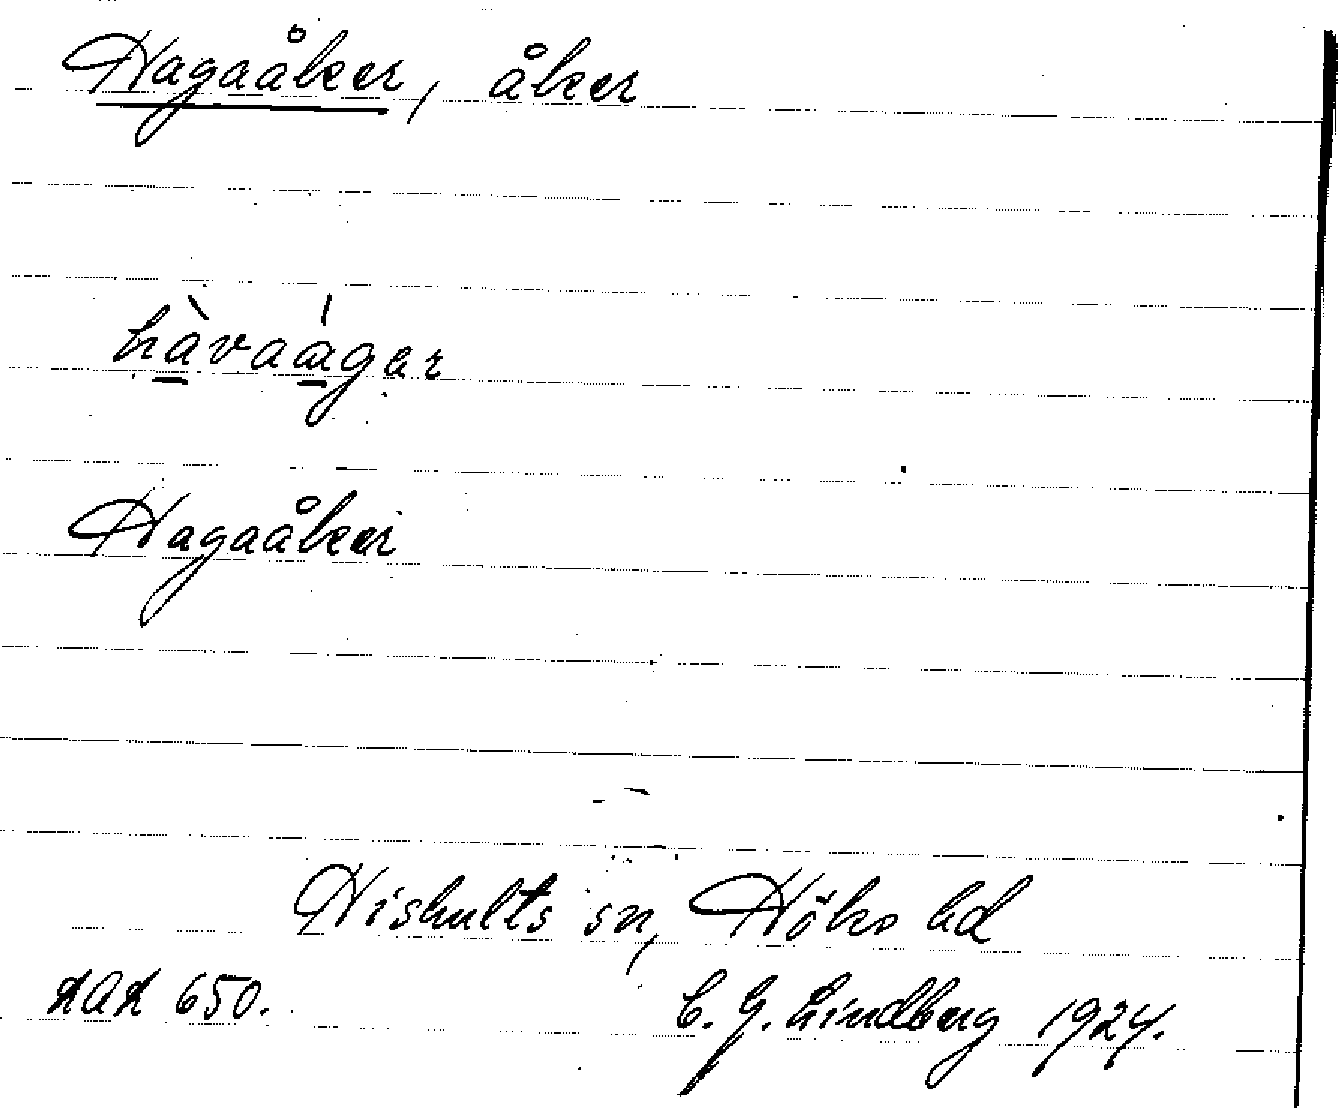 Hagaåker, åker
hàvaágar
Hagaåker
Hishults sn, Höks hd
XAX 650.
C. G. Lindberg 1924.